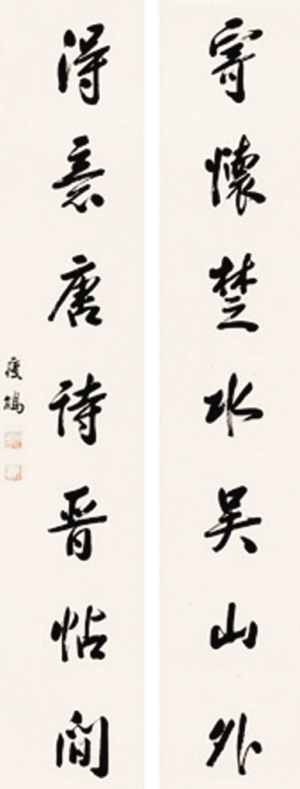 寄懷楚水吳山外
得意唐詩晉帖間
瘦鵑